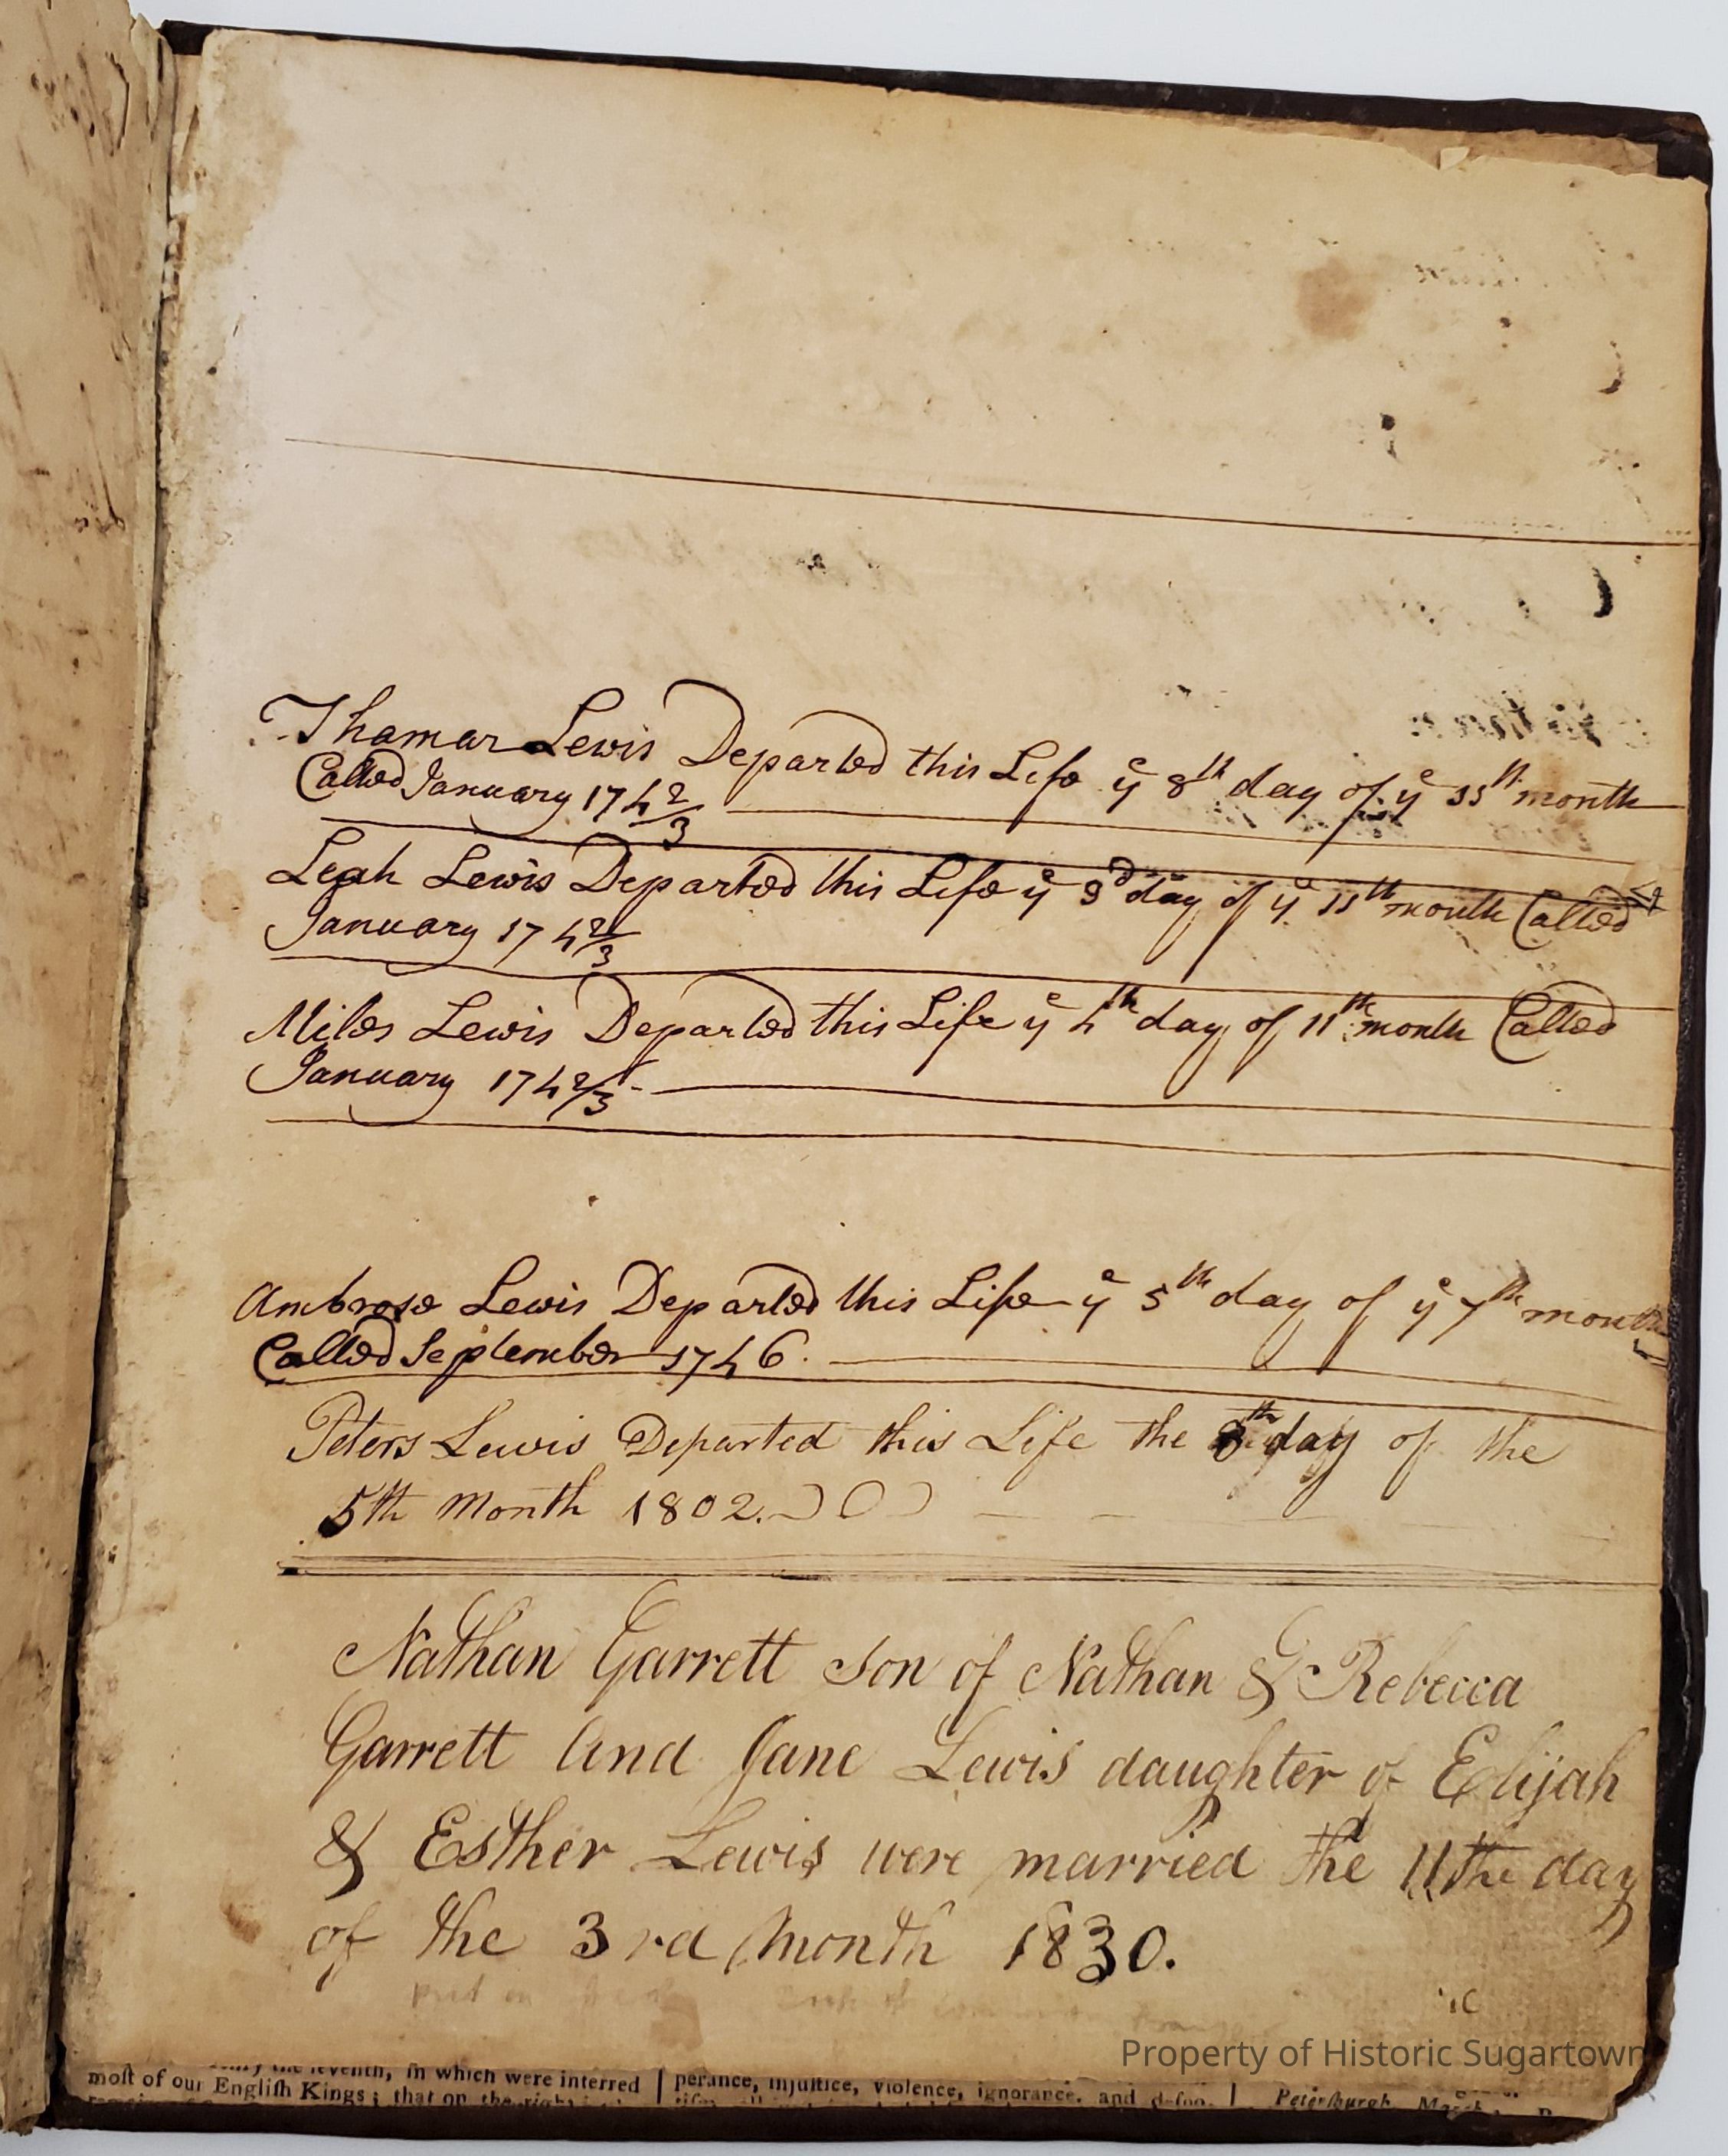 Thamar Lewis Departed this Life yͤ 8th day of yͤ 11th month
Called January 174 2/3
Leah Lewis Departed this Life yͤ 3d day of yͤ 11th month Called
January 174 2/3
Miles Lewis Departed this Life yͤ 4th day of 11th month Called
January 174 2/3
Ambrose Lewis Departed this Life yͤ 5th day of yͤ 7th month
Called September 1746.
Peters Lewis Departed this Life the 8th day of the
5th Month 1802.
Nathan Garrett Son of Nathan & Rebecca
Garrett And Jane Lewis daughter of Elijah
& Esther Lewis were married the 11th day
of the 3rd Month 1830.
Property of Historic Sugartown
seventh, in which were interred
moſt of our Engliſh Kings; that on the right
perance, injuſtice, violence, ignorance, and
Peterſburgh, March